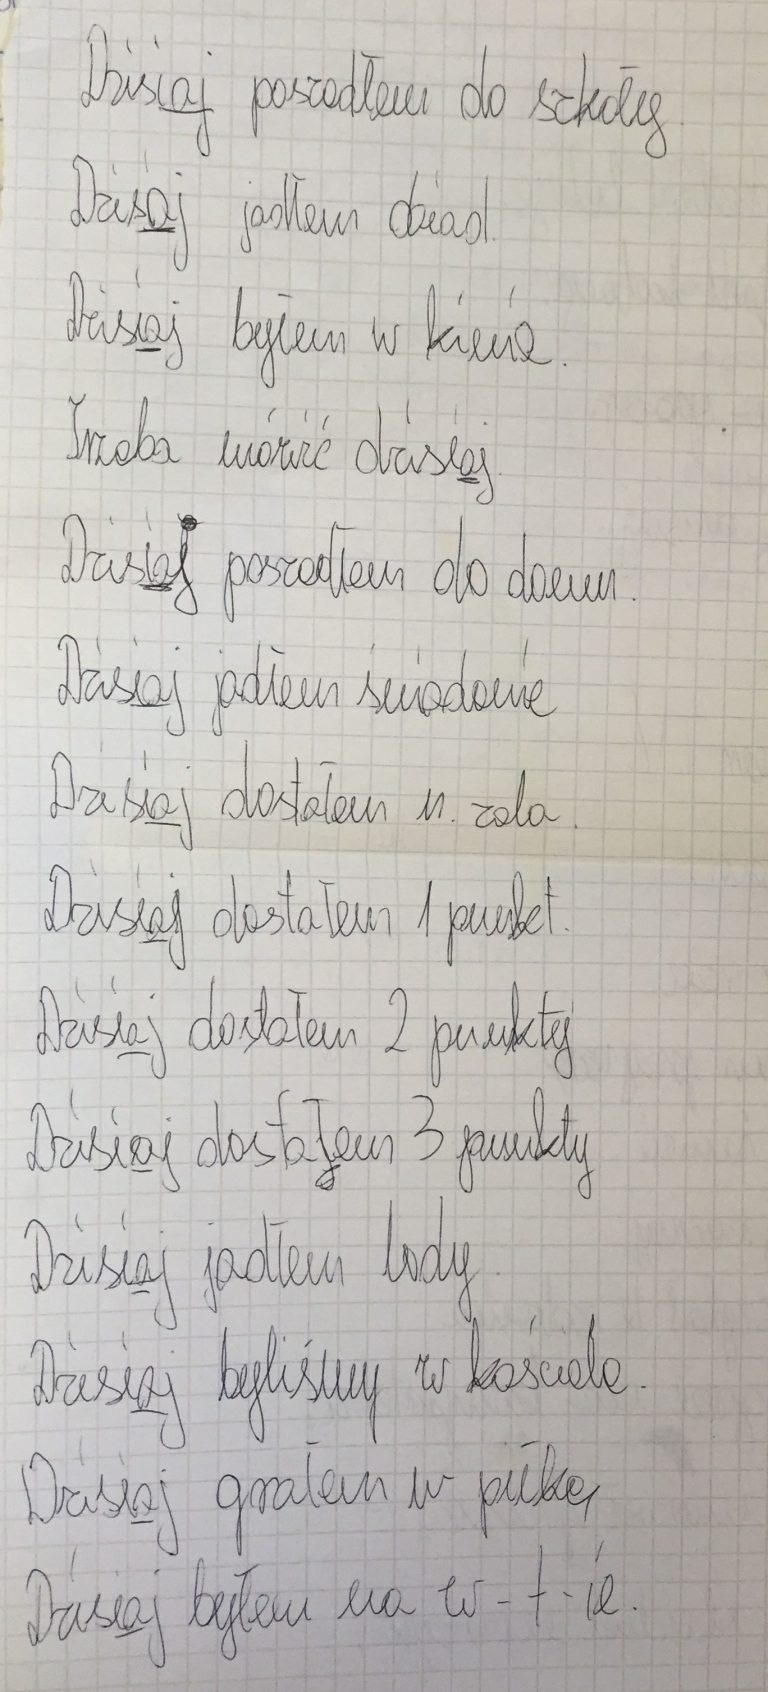 Dzisiaj poszedłem do szkoły.
Dzisiaj jadłem obiad.
Dzisiaj byłem w kinie.
Trzeba mówić dzisiaj.
Dzisiaj poszedłem do domu.
Dzisiaj jadłem śniadanie
Dzisiaj dostałem n. zola.
Dzisiaj dostałem 1 punkt.
Dzisiaj dostałem 2 punkty
Dzisiaj dostałem 3 punkty
Dzisiaj jadłem lody.
Dzisiaj byliśmy w kościele.
Dzisiaj grałem w piłkę
Dzisiaj byłem na w-f-ie.